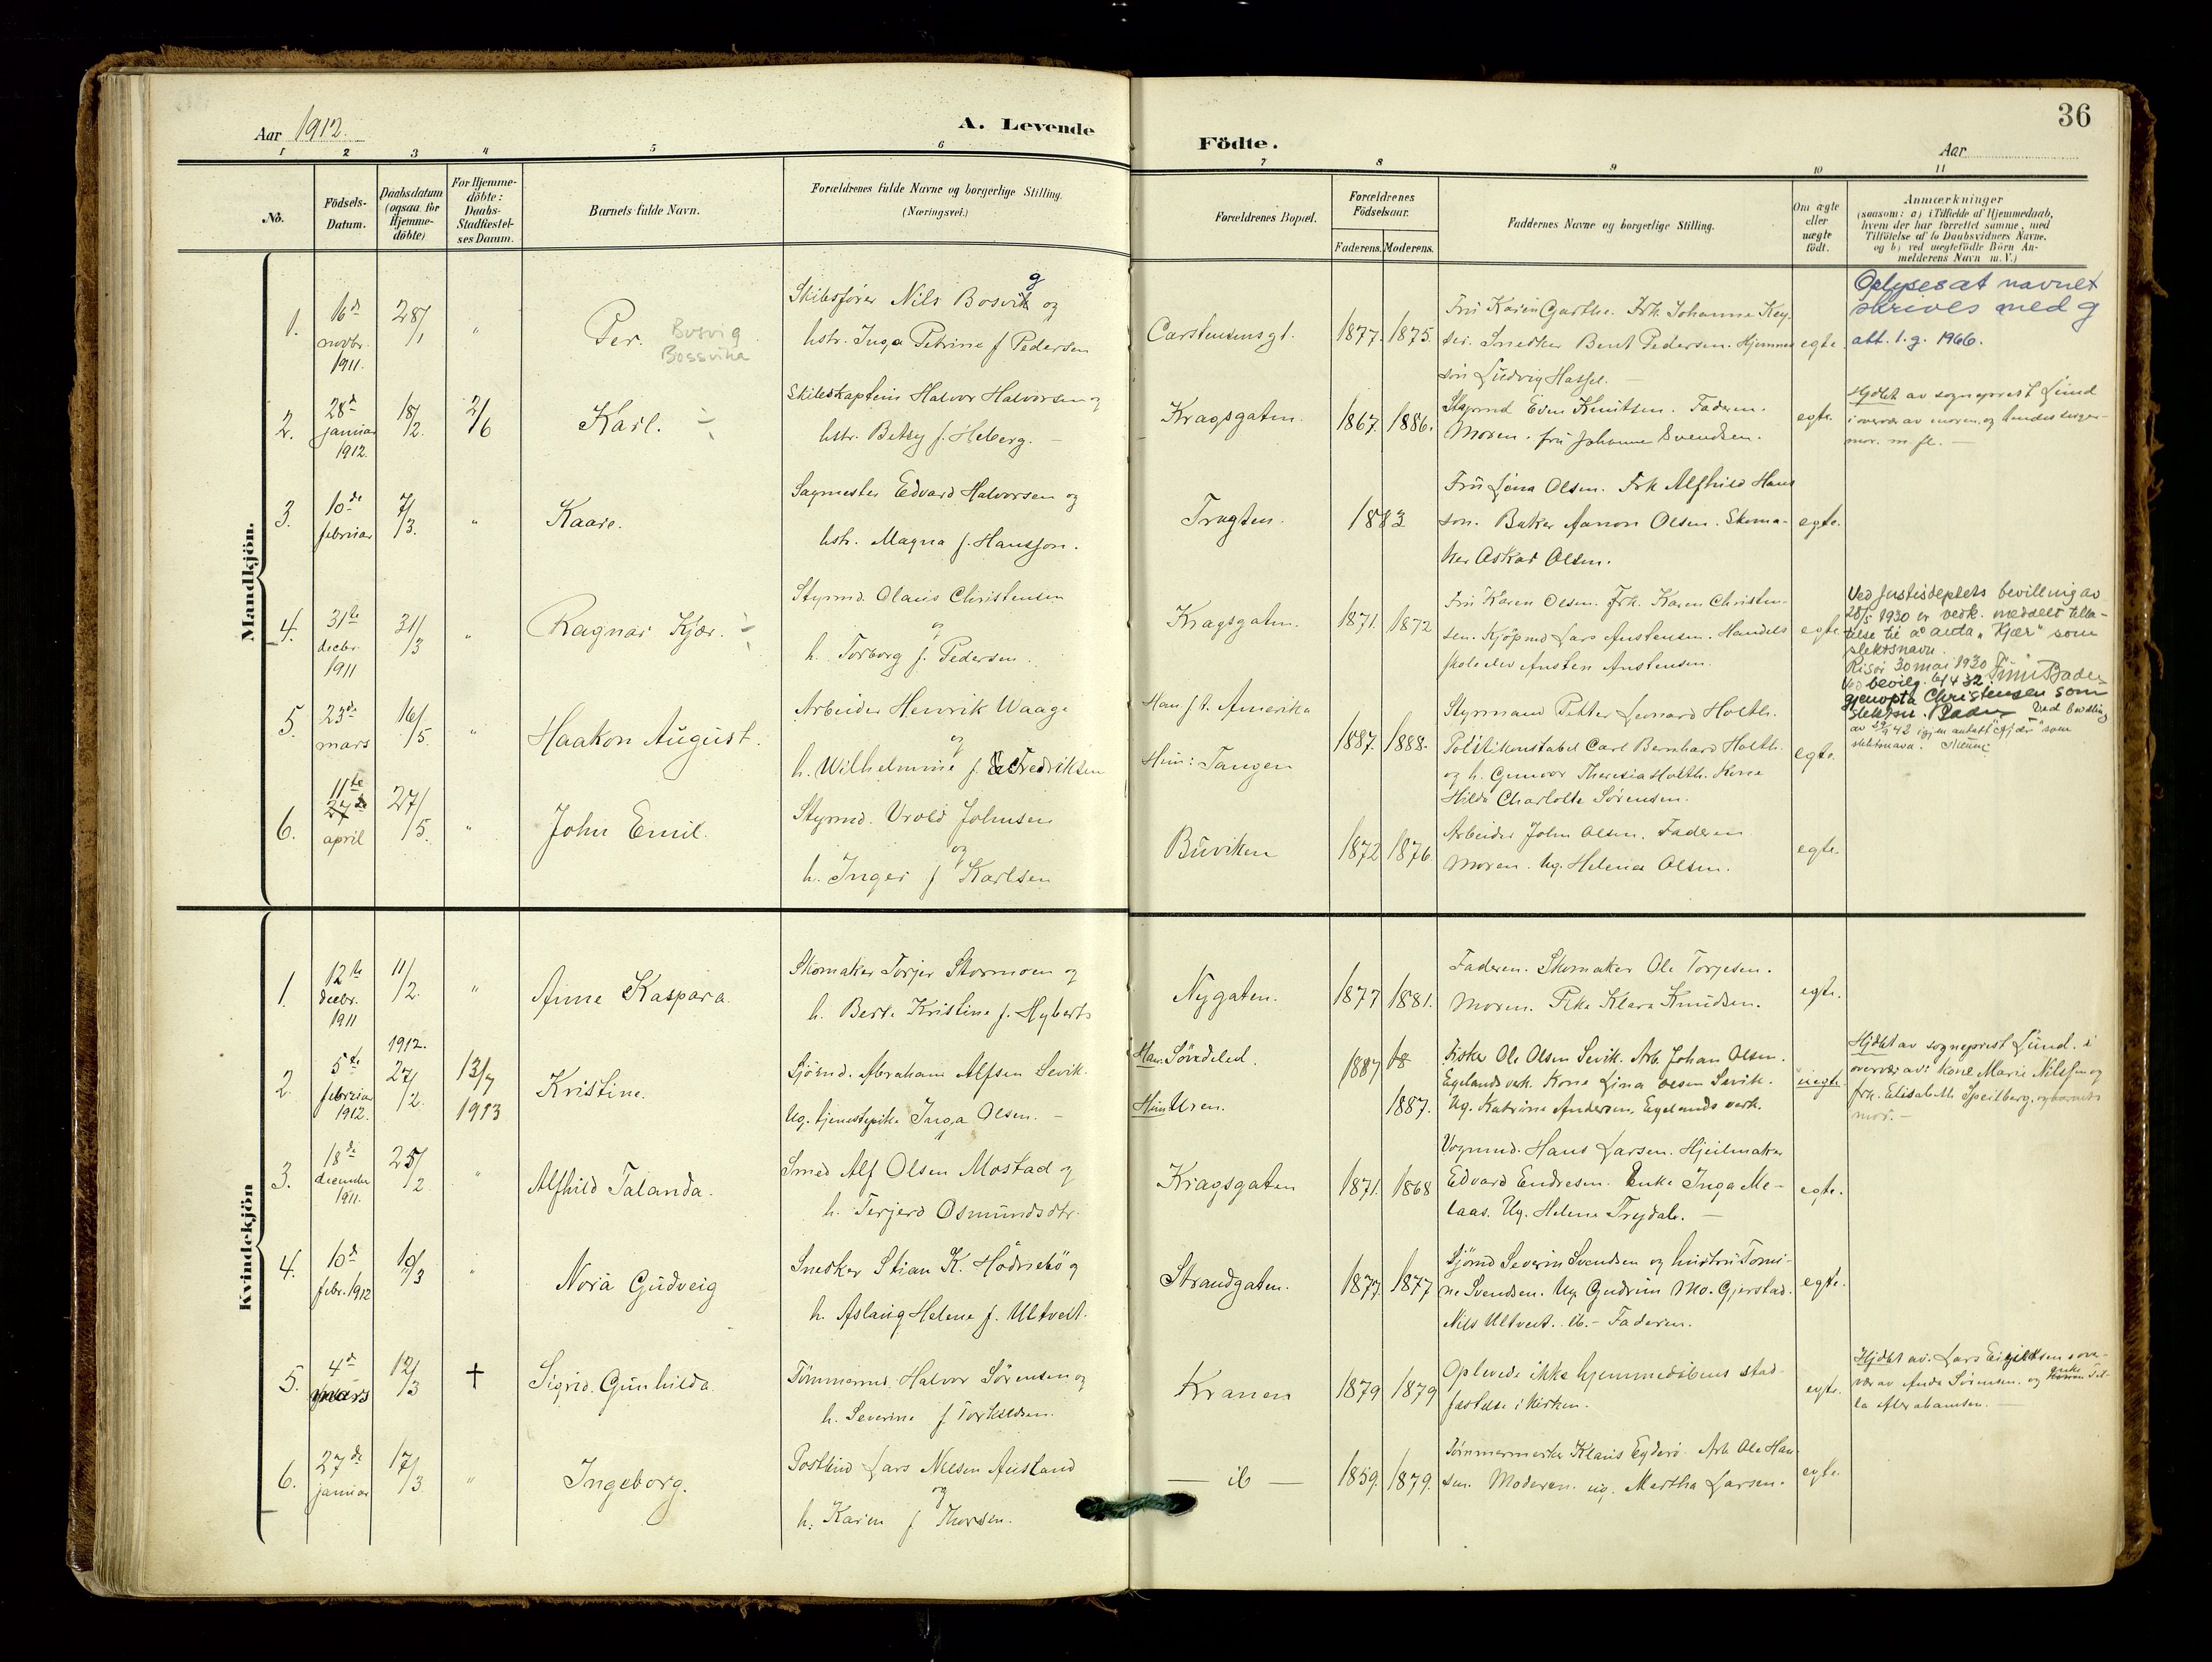 36
Aar 1912.
A. Levende
Födte.
Aar
1 2 3 4 5 6 7 8 9 10 11
No.
Födsels-
Datum.
Daabsdatum
(ogsaa for
Hjemme-
döbte)
For Hjemme-
döbte:
Daabs-
Stadfæstel-
ses Datum.
Barnets fulde Navn.
Forældrenes fulde Navne og borgerlige Stilling.
(Næringsvei.)
Forældrenes Bopæl.
Forældrenes
Födselsaar.
Faderens. Moderens.
Faddernes Navne og borgerlige Stilling.
Om ægte
eller
uægte
födt.
Anmærkninger
(saasom: a) i Tilfælde af Hjemmedaab,
hvem der har forrettet samme, med
Tilföielse af to Daabsvidners Navne,
og b) ved uægtefödte Börn An-
melderens Navn m. V.)
Mandkjön.
1.
16de
novbr.
1911.
28/1
"
Per.
Bosvig
Bossvika
Skibsfører Nils Bosvik og
g
hstr. Inga Petrine f Pedersen
Carstensensgt.
1877. 1875.
Fru Karen Garthe. Frk. Johanne Key-
ser. Snedker Bent Pedersen. Hjemmes
søn Ludvig Hassel.
egte.
Oplyses at navnet
skrives med g
att. 1.g. 1966.
2.
28de
januar
1912.
18/2.
2/6
Karl.
Skibskaptein Halvor Halvorsen og
hstr. Betsy f. Heberg.
Kragsgaten.
1867. 1886.
Styrmd Even Knutsen. Faderen.
Moren. fru Johanne Svendsen.
egte.
Hjdbt av sogneprest Lund
i overvær av moren og hendes sviger-
mor. m. fl.
3.
10de
februar
7/3.
"
Kaare.
Sagmester Edvard Halvorsen og
hstr. Magna f. Hansson.
Tragten.
1883
Fru Lena Olsen. Frk Alfhild Hans
son. Baker Aanon Olsen. Skoma-
ker Oskar Olsen.
egte.
4.
31te
decbr.
1911
31/3
"
Ragnar Kjær.
Styrmd. Olaus Christensen
og
h. Torborg f. Pedersen.
Kragsgaten.
1871. 1872
Fru Karen Olsen. Frk. Karen Christen-
sen. Kjöpmd Lars Austensen. Handels
skoleelev Austen Austensen.
egte.
Ved Justisdeptets bevilling av
28/5 1930 er vedk. meddelt tilla-
telse til å anta „Kjær" som
slektsnavn.
Risør 30 mai 1930
Ved bevilg.
gjenopta Christensen som
slektsn.
Ved bevilling
slektsnavn.
5.
23de
mars
16/5.
"
Haakon August.
Arbeider Henrik Waage
og
h. Wilhelmine f. Fredriksen
Han f. t. Amerika
Hun: Tangen
1887. 1888.
Styrmand Petter Leonard Holth.
Politikonstabel Carl Bernhard Holth.
og h. Gunvor Theresia Holth. Kone
Hilda Charlotte Sörensen.
egte.
6.
11te
27de
april
27/5.
"
John Emil.
Styrmd. Vrold Johnsen
og
h. Inger f Karlsen
Buviken
1872 1876.
Arbeider John Olsen. Faderen
Moren. Ug. Helena Olsen.
egte.
Kvindekjön
1.
12te
decbr.
1911
11/2.
"
Anne Kaspara.
Skomaker Torjer Stormoen og
h. Berte Kristine f. Hyberts
Nygaten.
1877 1881.
Faderen. Skomaker Ole Torjesen.
Moren. Pike Klara Knudsen.
egte.
2.
5te
februar
1912.
1912.
27/2.
13/7
1913
Kristine.
Sjömd. Abraham Alfsen Sevik.
Ug. tjenestepike Inga Olsen.
Han: Söndeled.
Hun Uren.
1887 18
1887.
Fisker Ole Olsen Sevik. Arb. Johan Olsen.
Egelands verk. Kone Lina Olsen Sevik.
Ug. Katrine Andersen, Egelands verk.
uegte.
Hjdbt av sogneprest Lund. i
overvær av: kone Marie Nilssen og
frk. Elisabeth Speilberg. og barnets
mor.
3.
18de
december
1911.
25/2
"
Alfhild Talanda.
Smed Alf Olsen Mostad og
h. Terjerd Osmundsdtr.
Kragsgaten
1871. 1868
Vognmd. Hans Larsen. Hjulmaker
Edvard Endresen. Enke Inga Me-
laas. Ug. Helene Trydal.
egte.
4.
10de
febr. 1912
10/3
"
Nora Gudveig
Snedker Stian K. Hödnebö og
h. Aslaug Helene f. Ultveit.
Strandgaten.
1877. 1877
Sjömd Severin Svendsen og hustru Tomi-
ne Svendsen. Ug. Gudrun Mo. Gjerstad.
Nils Ultveit. ib. - Faderen.
egte.
5.
4de
mars
12/3
✝
Sigrid Gunhilda.
Tömmermd. Halvor Sörensen og
h. Severine f Torkildsen.
Kranen
1879 1879
Oplevede ikke hjemmedåbens stad-
fæstelse i kirken.
egte.
Hjdbt av. Lars Eigildsen i over-
vær av Anda Sörensen. og enke
la Abrahamsen.
6.
27de
januar
17/3.
"
Ingeborg.
Postbud Lars Nilsen Austland
og
h. Karen f Thorsen.
— ib —
1859. 1879.
Tömmermerker Klaus Eyderö. Arb. Ole Han-
sen. Moderen. ug. Martha Larsen.
egte.